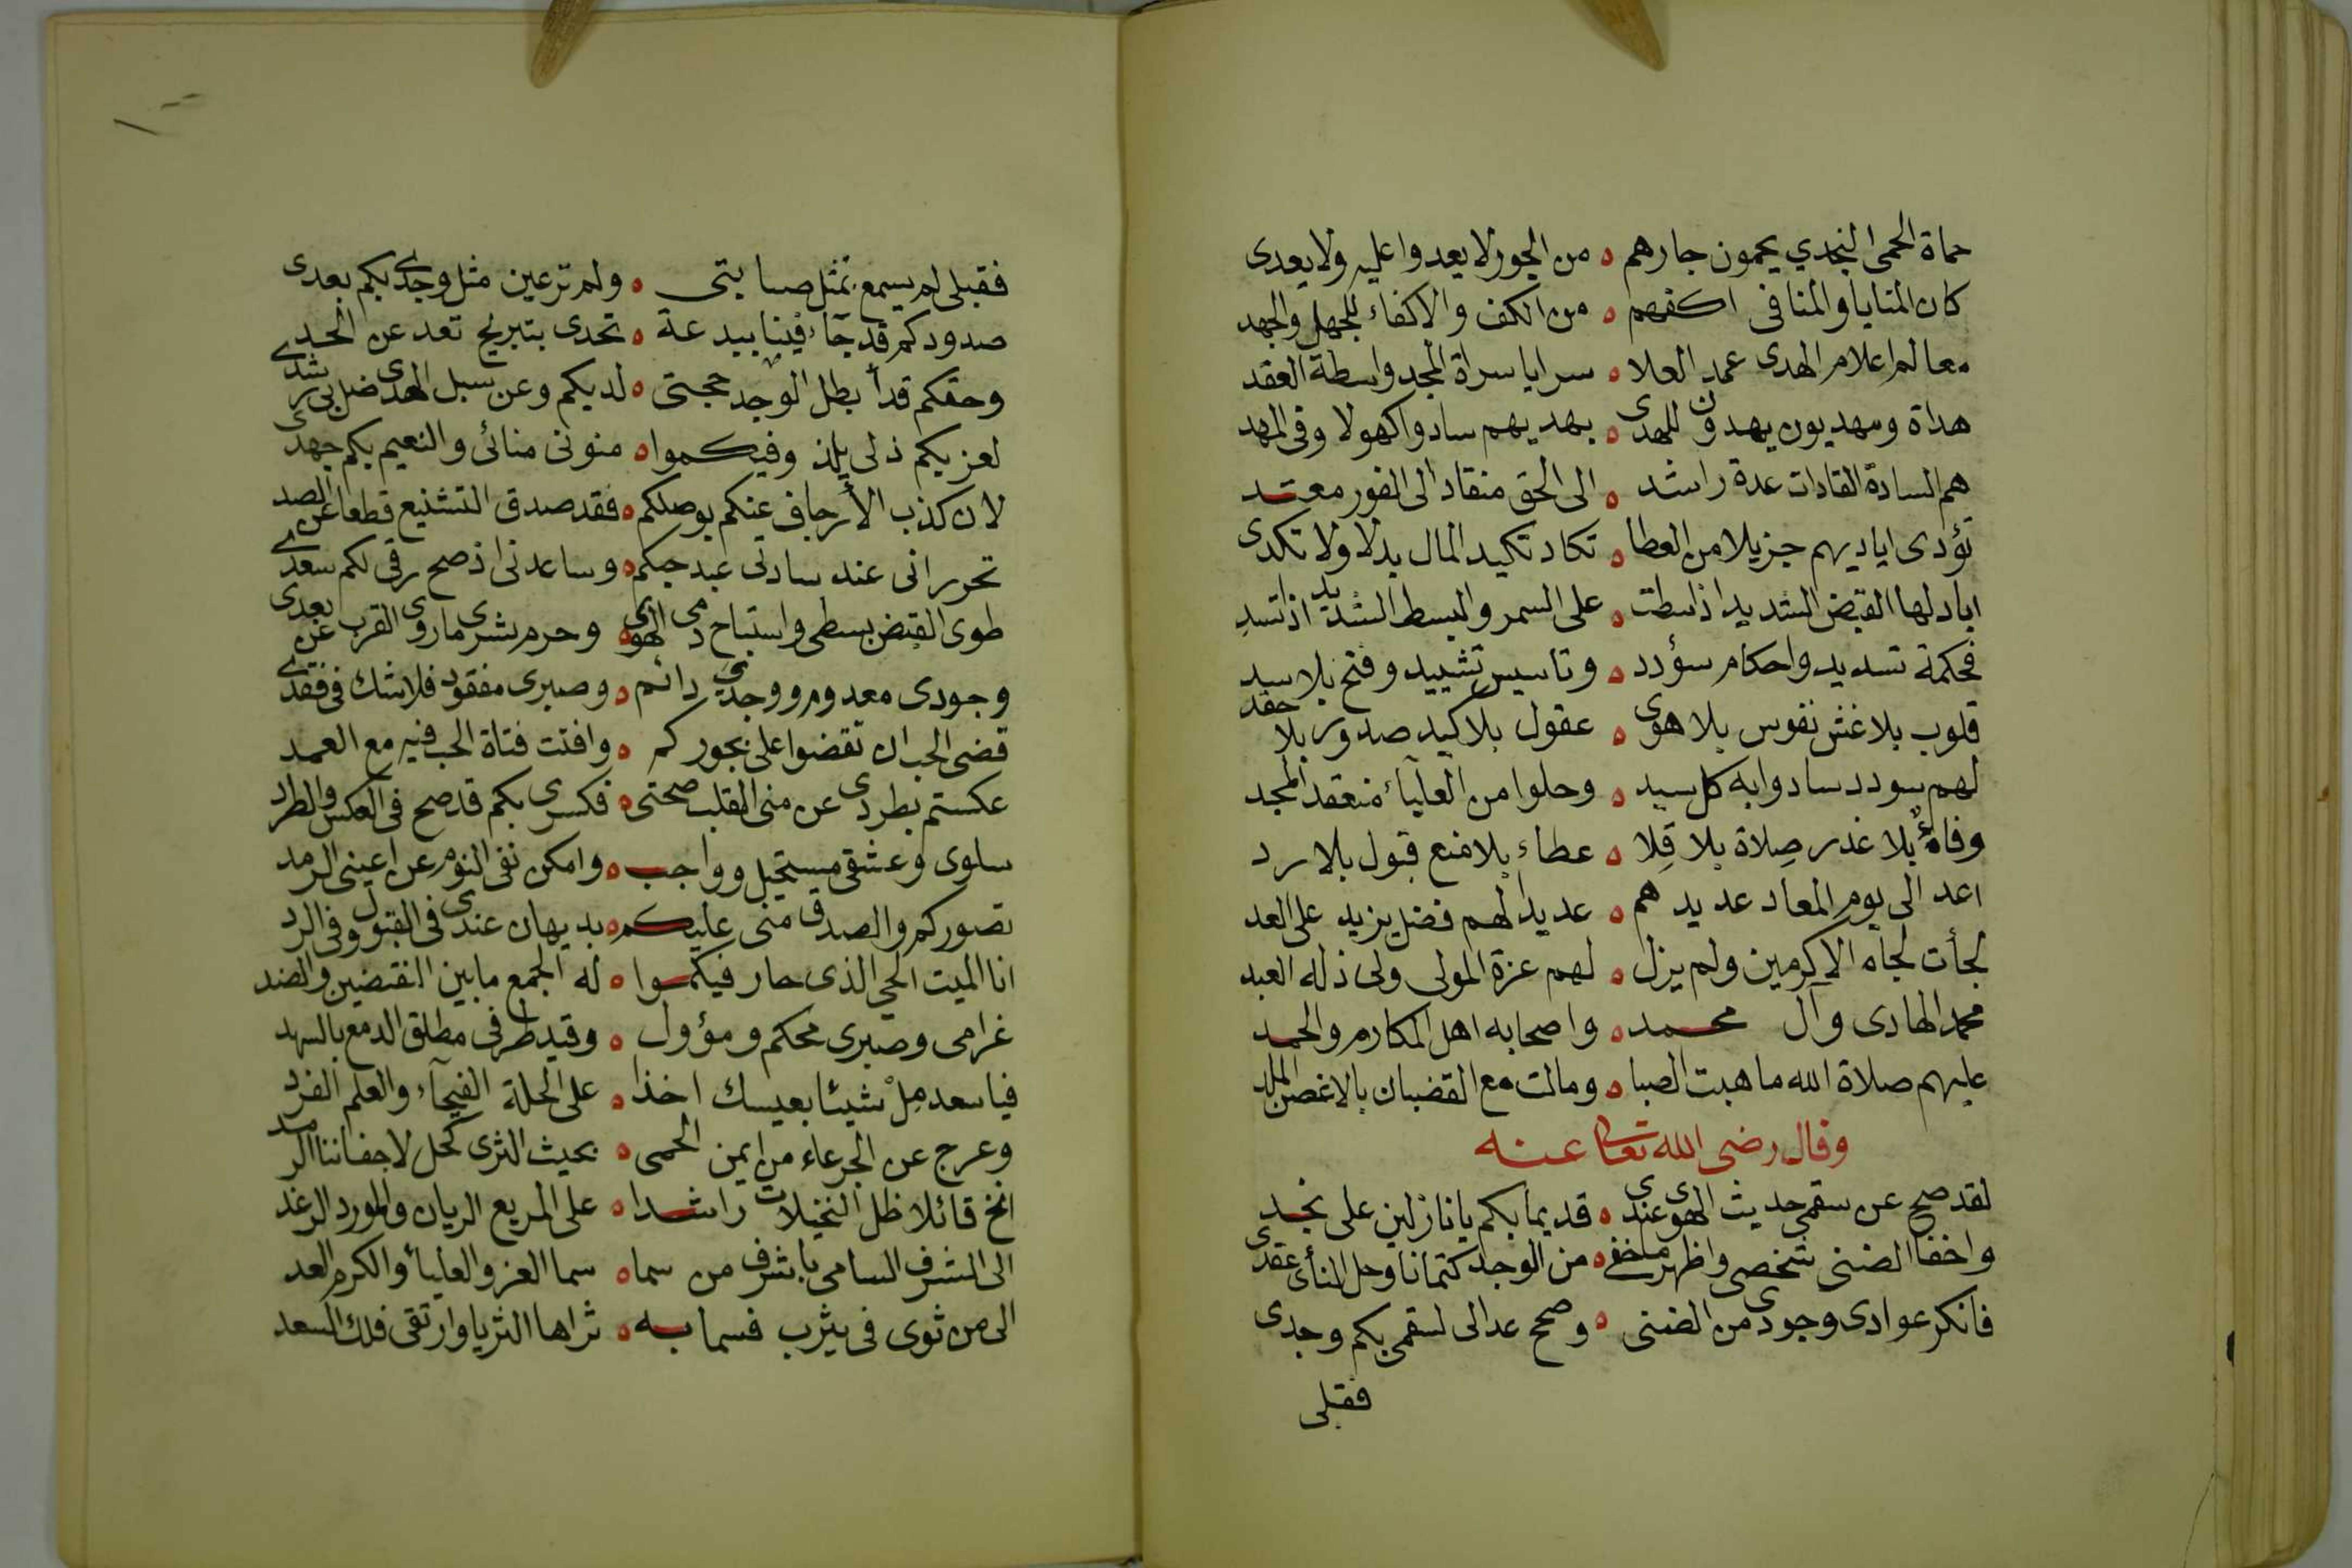 حماة الحمى النجدي يحمون جارهم ه من الجور لا يعدوا عليه ولا يعدى
كان المنايا والمنا فى اكفهم ه من الكف والاكفاء للجهل والجهد
معالم اعلام الهدى عمد العلا ه سرايا سراة المجد واسطة العقد
هداة ومهديون يهدون للهدى ه بهديهم سادوا كهولا وفى المهد
هم السادة القادات عدة راشد ه الى الحق منقاد الى الفور معتد
تؤدى اياديهم جزيلا من العطا ه تكاد تكيد المال بذلا ولا تكدى
اياد لها القبض الشديد اذا سطت ه على السمر والبسط الشديد اذا تسد
فحكمة تسديد واحكام سؤدد ه وتاسيس تشييد وفتح بلا سد
قلوب بلا غش نفوس بلا هوى ه عقول بلا كيد صدور بلا حقد
لهم سودد سادوا به كل سيد ه وحلوا من العلياء منعقد المجد
وفاءٌ بلا غدر صِلاة بلا قِلا ه عطاء بلا منع قبول بلا رد
اعد الى يوم المعاد عديدهم ه عديدا لهم فضل يزيد على العد
لجأت لجاه الاكرمين ولم يزل ه لهم عزة المولى ولى ذلة العبد
محمد الهادى وآل محمد ه واصحابه اهل المكارم والحمد
عليهم صلاة الله ما هبت الصبا ه ومالت مع القضبان بالاغصن الملد
وقال رضى الله تعالى عنه
لقد صح عن سقمى حديث الهوى عندى ه قديما بكم يا نازلين على نجد
واخفا الضنى شخصى واظهر ما خفى ه من الوجد كتمانا وحل المنأى عقدى
فانكر عوادى وجودى من الضنى ه وصح عدالى لسقمى بكم وجدى
فقبلى
فقبلى لم يسمع بمثل صبابتى ه ولم تر عين مثل وجدى بكم بعدى
صدودكم قد جآء فينا ببدعة ه تحدى بتبريح تعد عن الحد
وحقكم قد أبطل الوجد حجتى ه لديكم وعن سبل الهدى ضل بى رشدى
لعزيكم ذلى يلذ وفيكموا ه منونى منائى والنعيم بكم جهدى
لان كذب الأرجاف عنكم بوصلكم ه فقد صدق التشنيع قطعا عن الصد
تحرر انى عند سادتى عبد حبكم ه وساعدنى اذ صح رقى لكم سعدى
طوى القبض بسطى واستباح دمى الهوى ه وحرم بشرى ما روى القرب عن بعدى
وجودى معدوم ووجدى بى دائم ه وصبرى مفقود فلا شك فى فقدى
قضى الحب ان تقضوا على بجوركم ه وافتت فتاة الحب فيه مع العمد
عكستم بطردى عن منى القلب صحتى ه فكسرى بكم قد صح فى العكس والطرد
سلوى وعشقى مستحيل وواجب ه وامكن نفى النوم عن اعينى الرمد
تصوركم والصدق منى عليكم ه بديهان عندى فى القبول وفى الرد
انا الميت الحي الذى حار فيكموا ه له الجمع ما بين النقيضين والضد
غرامى وصبرى محكم ومؤول ه وقيد طرفى مطلق الدمع بالسهد
فيا سعد مِلْ شيئا بعيسك اخذا ه على الحلة الفيحآء والعلم الفرد
وعرج عن الجرعاء من ايمن الحمى ه بحيث الثرى كحل لاجفاننا الرمد
انخ قائلا ظل النخيلات راشدا ه على المربع الريان والمورد الرغد
الى الشرف السامى باشرف من سما ه سما العز والعلياء والكرم العد
الى من ثوى فى يثرب فسما به ه ثراها الثريا وارتقى فلك السعد